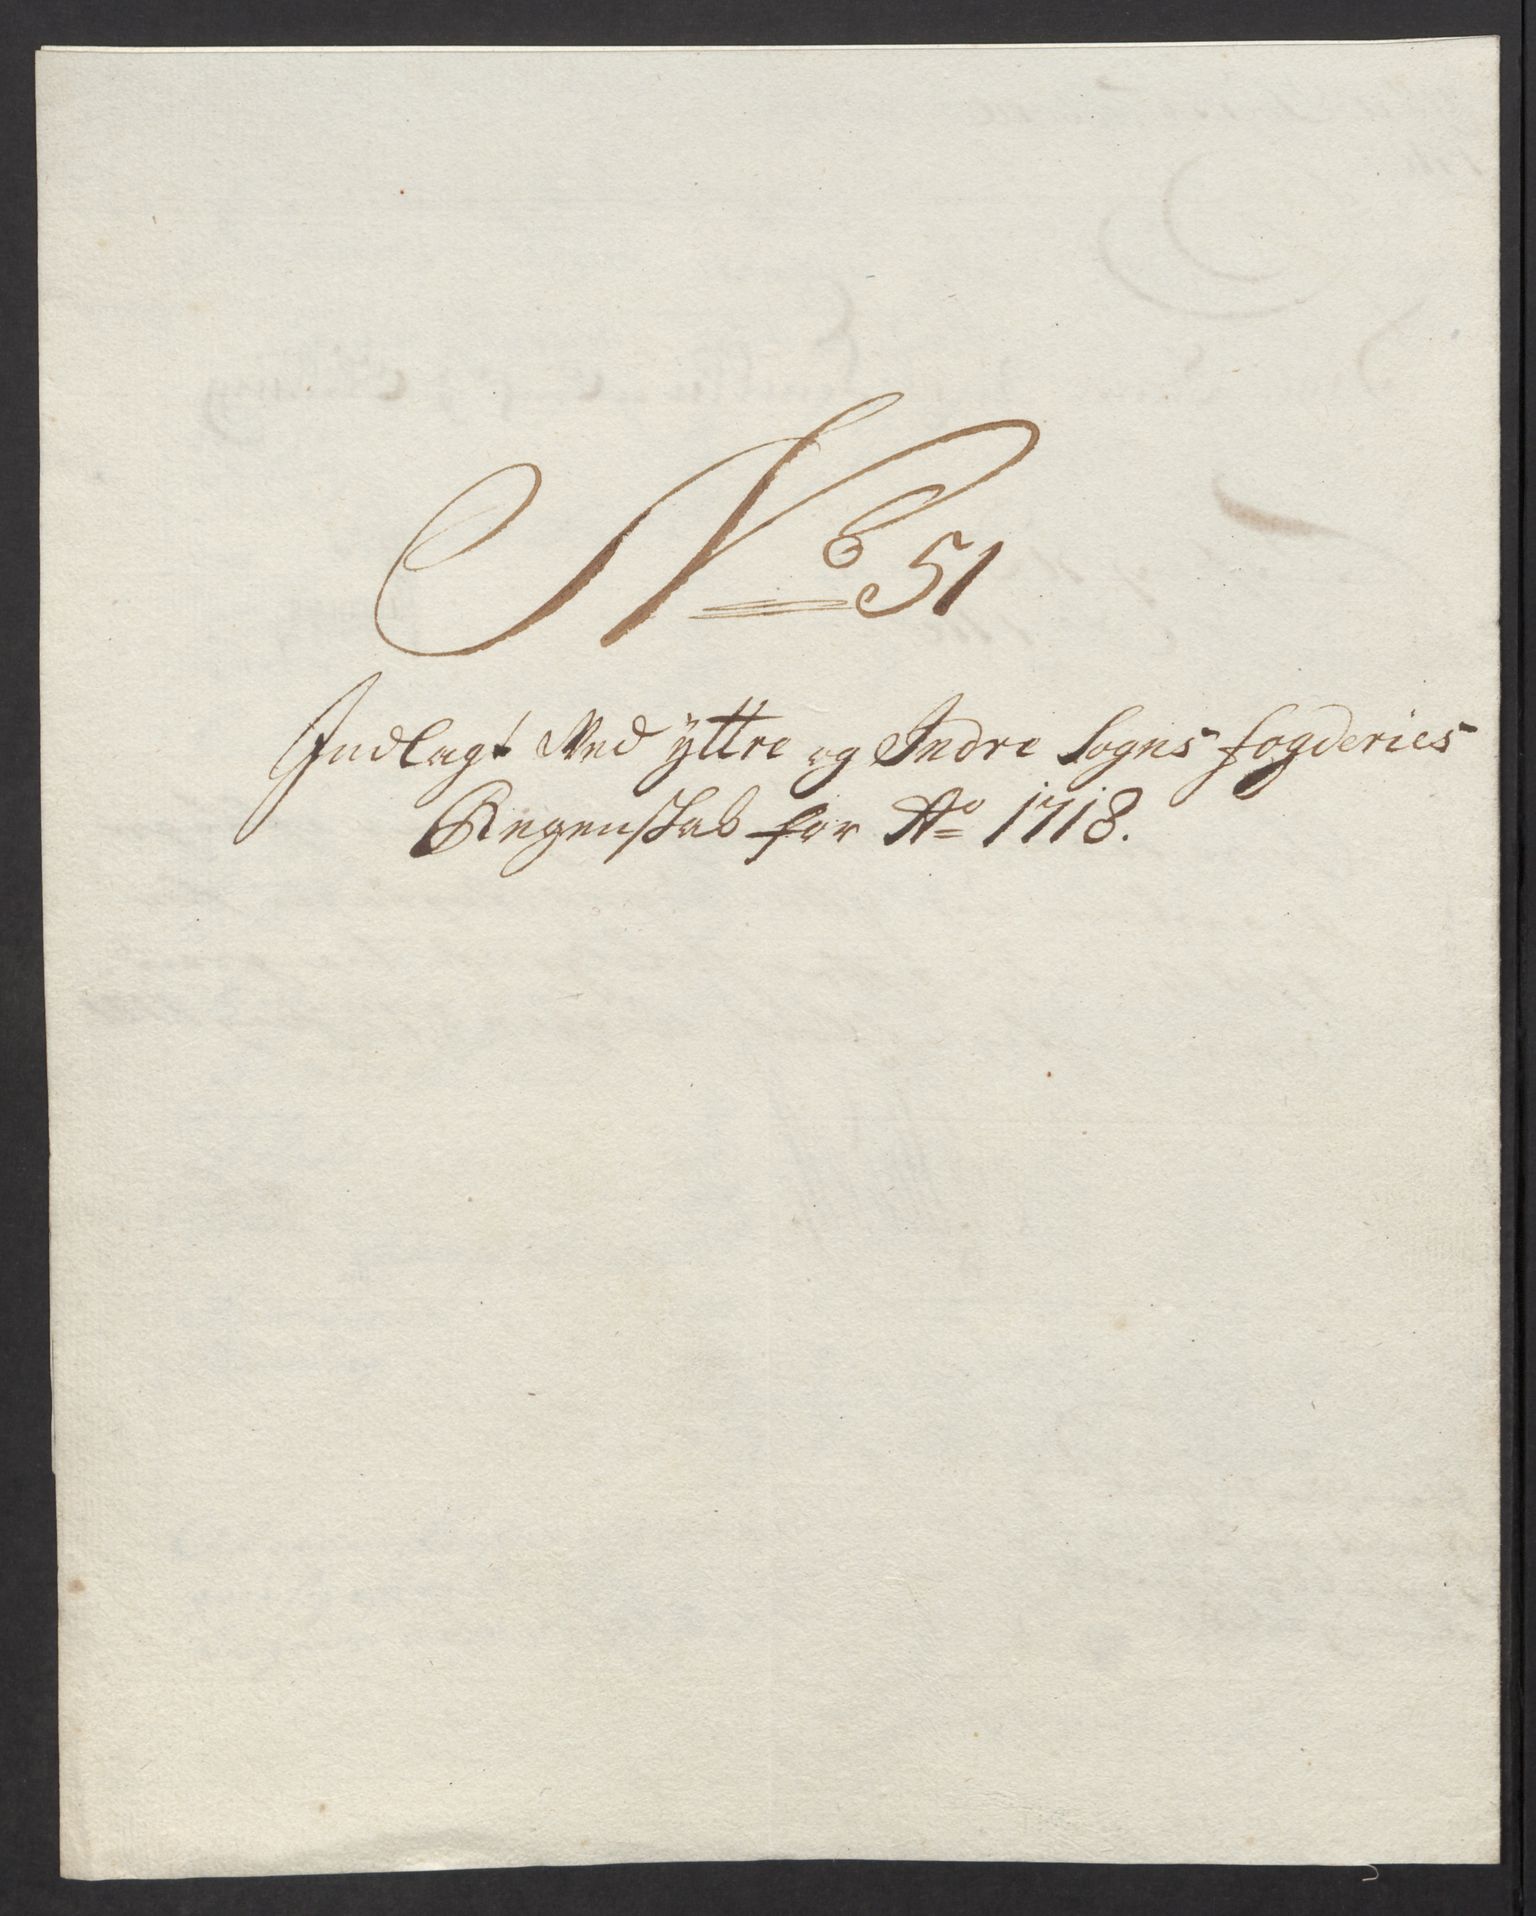 No 51
Indlagt Med ÿttre og Indre Sogns fogderies
Regenskab for Ao 1718.